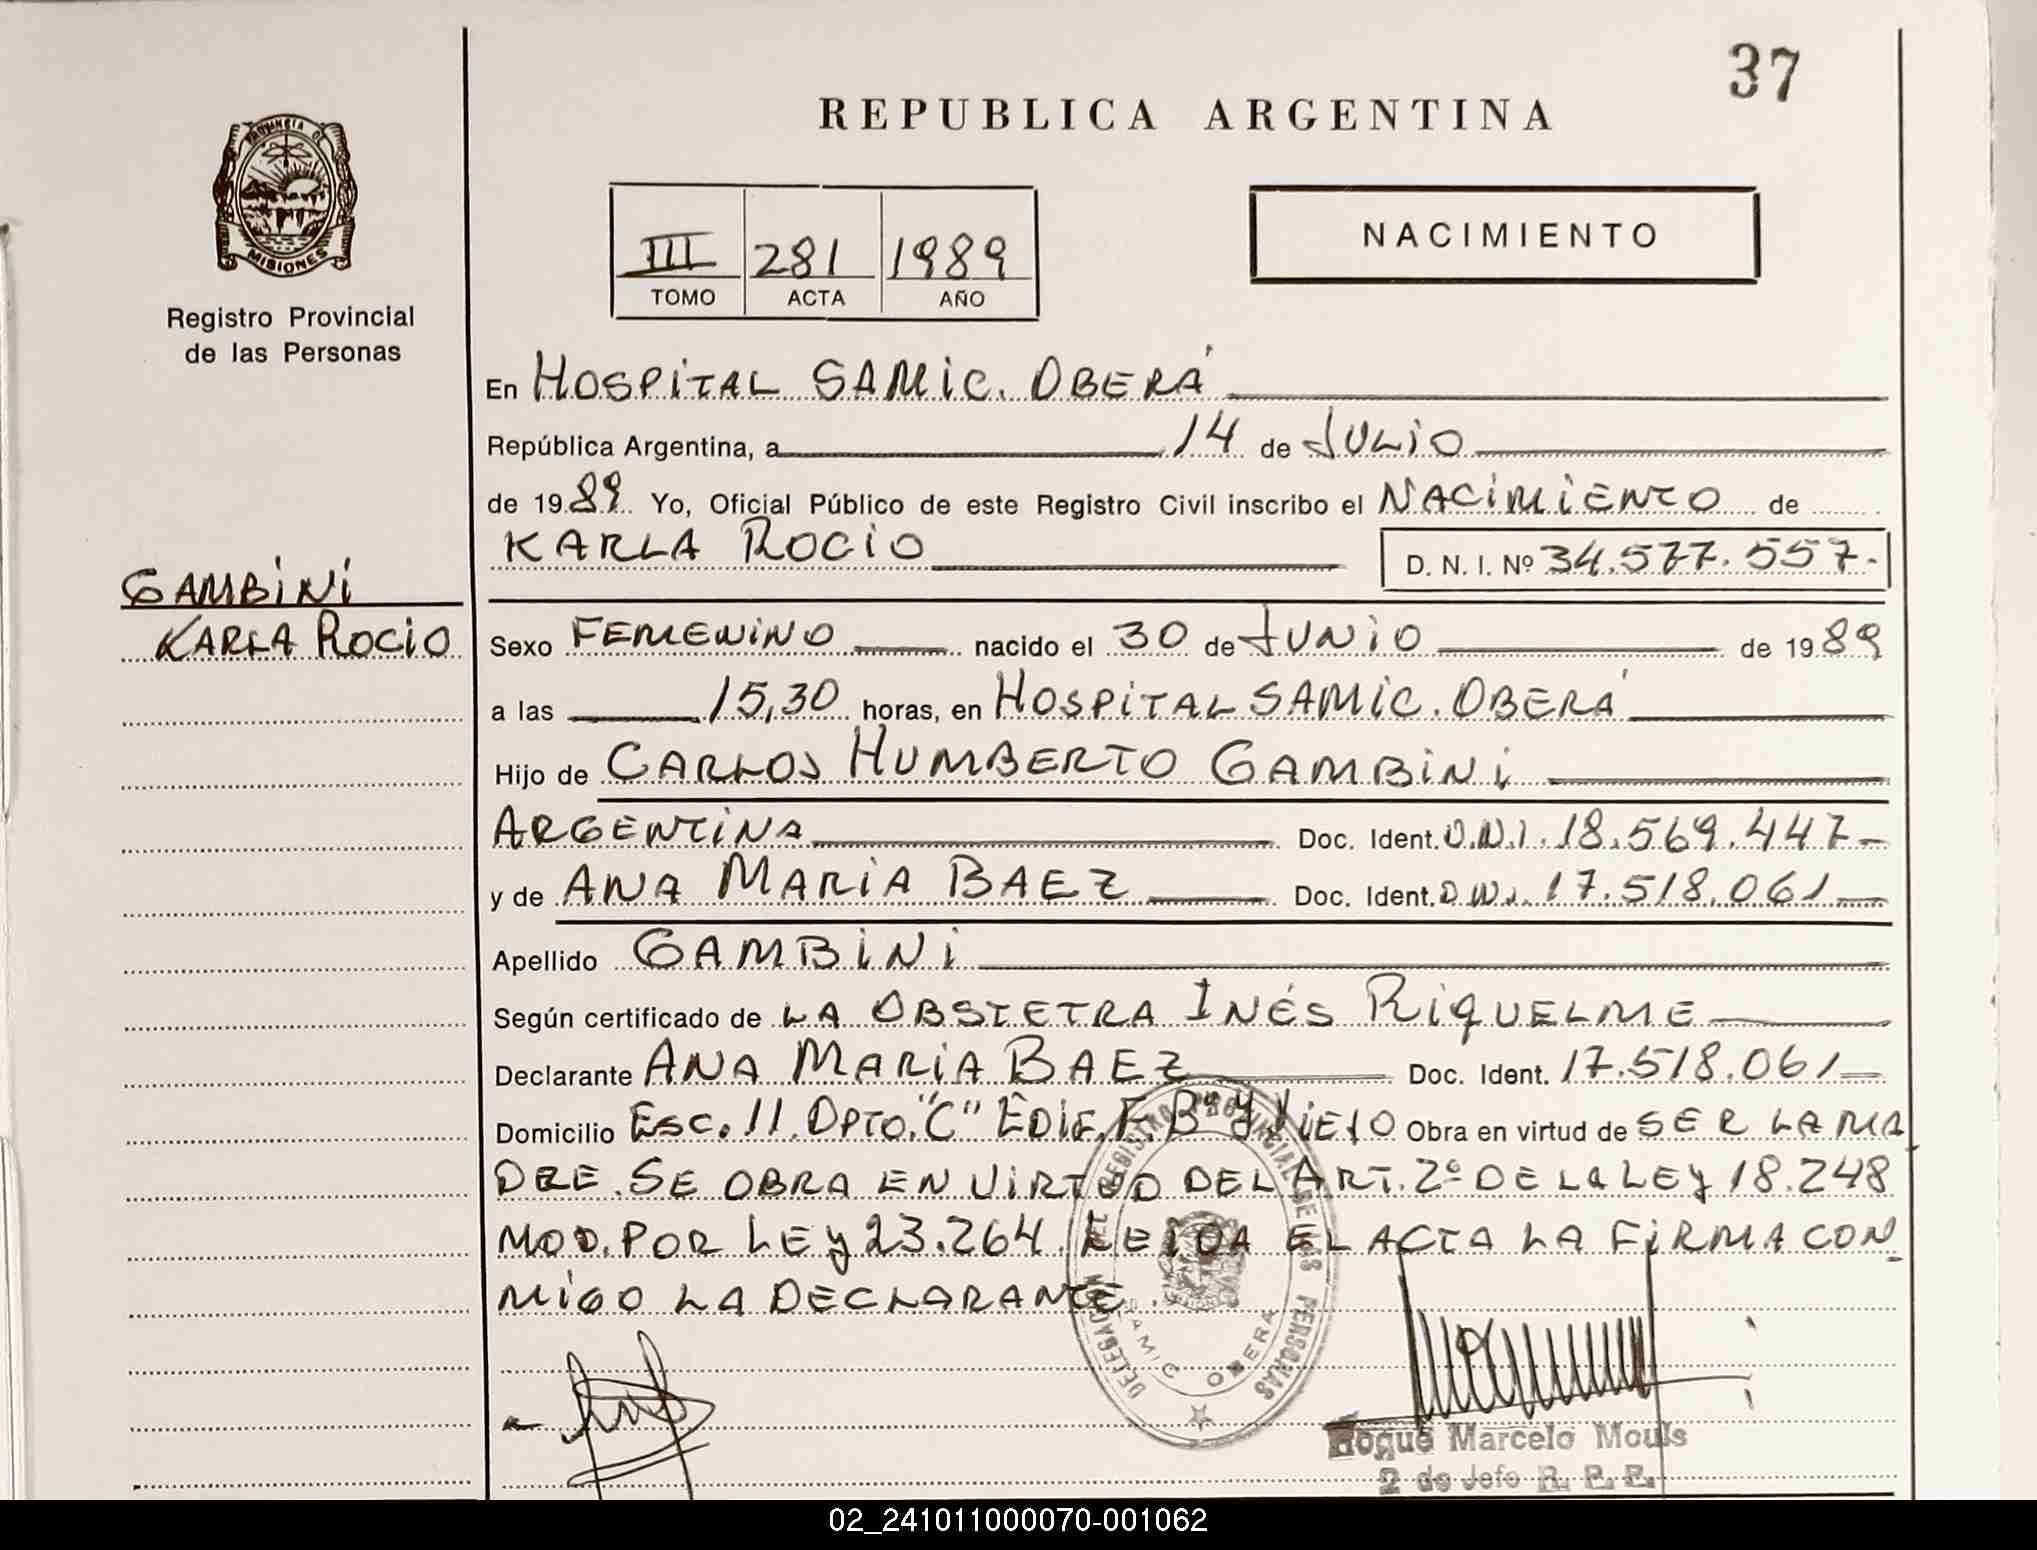 37
REPUBLICA ARGENTINA
PROVINCIA DE
MISIONES
Registro Provincial
de las Personas
III 281 1989
TOMO ACTA AÑO
NACIMIENTO
En HOSPITAL SAMIC. OBERÁ
República Argentina, a 14 de JULIO
de 1989 Yo, Oficial Público de este Registro Civil inscribo el NACIMIENTO de
KARLA ROCIO D. N. I. Nº 34.577.557.-
GAMBINI
KARLA ROCIO
Sexo FEMENINO nacido el 30 de JUNIO de 1989
a las 15,30 horas, en HOSPITAL SAMIC. OBERÁ
Hijo de CARLOS HUMBERTO GAMBINI
ARGENTINA Doc. Ident. D.N.I. 18.569.447-
y de ANA MARIA BAEZ Doc. Ident. D.N.I. 17.518.061
Apellido GAMBINI
Según certificado de LA OBSTETRA INÉS RIQUELME
Declarante ANA MARIA BAEZ Doc. Ident. 17.518.061
Domicilio ESC. 11. DPTO. "C" EDIF. F. Bº Y. VIEJO Obra en virtud de SER LA MA
DRE. SE OBRA EN VIRTUD DEL ART. 2º DE LA LEY 18.248
MOD. POR LEY 23.264. LEIDA EL ACTA LA FIRMA CON
MIGO LA DECLARANTE.
DELEGACION DEL REGISTRO PROVINCIAL DE LAS PERSONAS
SAMIC OBERA
Roque Marcelo Mouls
2 do Jefe R. P. P.
02_241011000070-001062